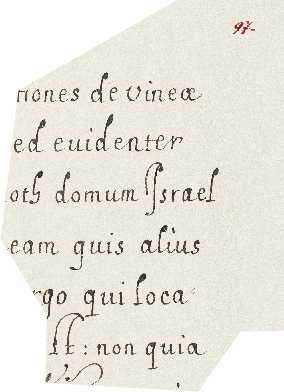 97.
tiones de vineæ
ed euidenter
oth domum Israel
eam quis alius
rgo qui loca
: non quia